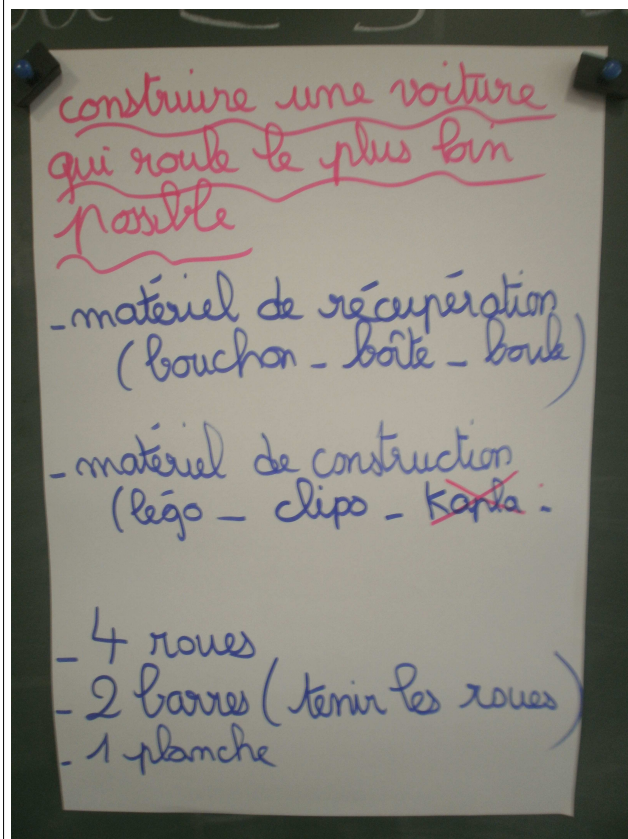 construire une voiture
qui roule le plus loin
possible
- matériel de récupération
(bouchon - boîte - boule)
- matériel de construction
(légo - clipo - Kapla -
- 4 roues
- 2 barres (tenir les roues)
- 1 planche